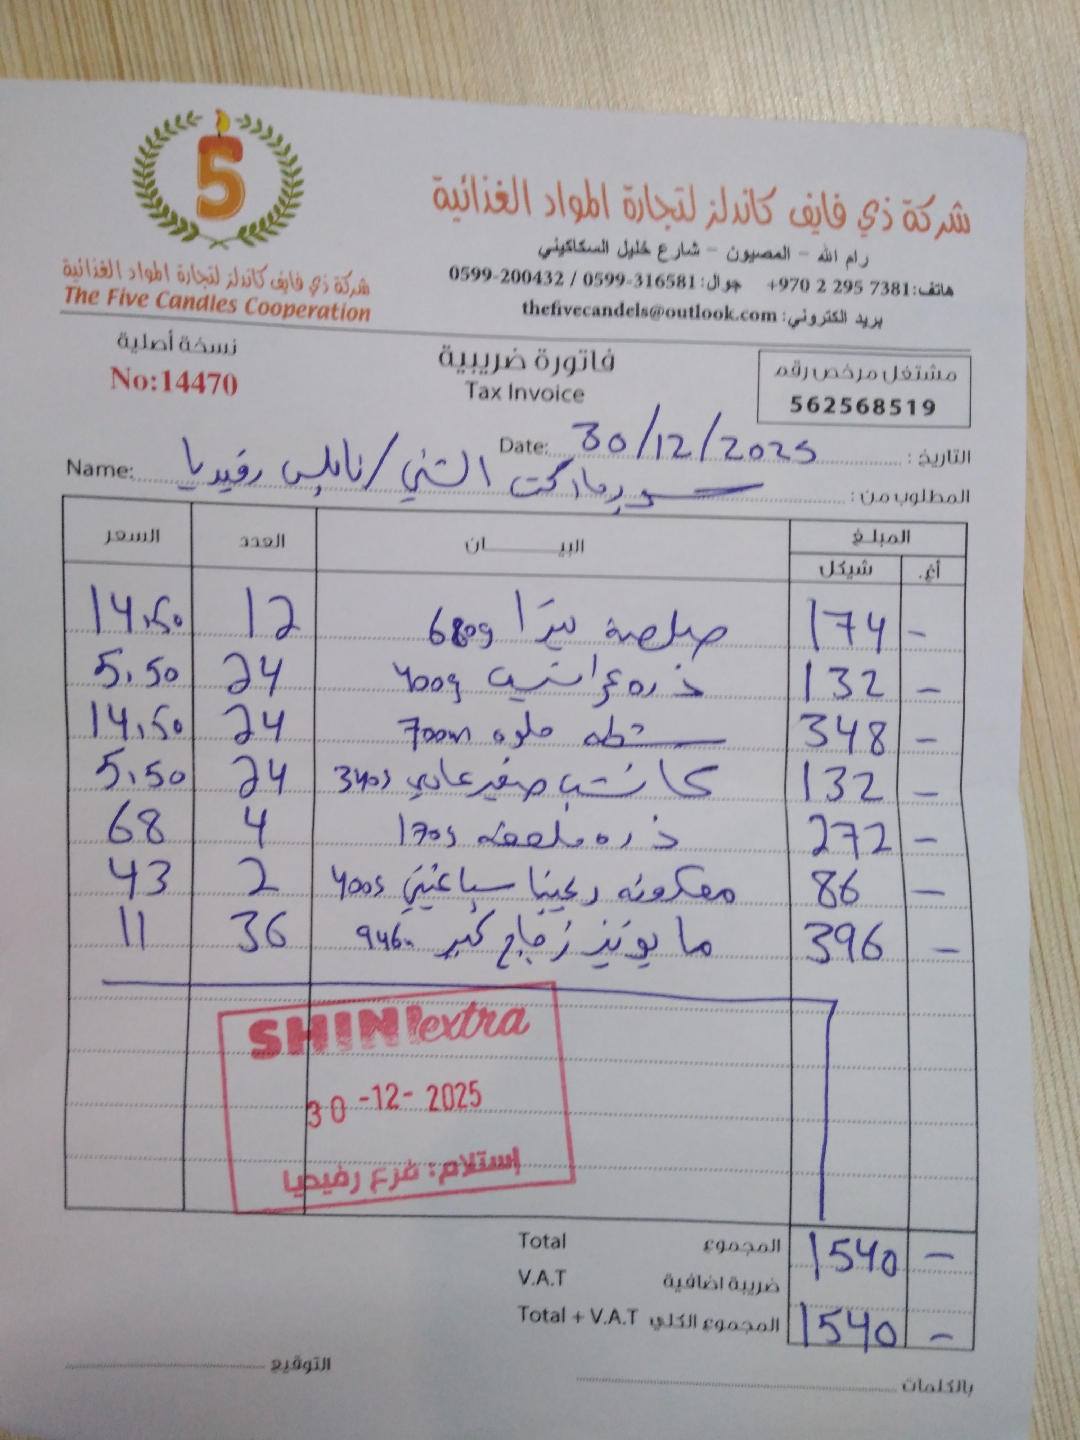 5
شركة ذي فايف كاندلز لتجارة المواد الغذائية
The Five Candles Cooperation
شركة ذي فايف كاندلز لتجارة المواد الغذائية
رام الله - المصيون - شارع خليل السكاكيني
هاتف: +970 2 295 7381 جوال: 0599-316581 / 0599-200432
بريد الكتروني: thefivecandels@outlook.com
نسخة أصلية
No:14470
فاتورة ضريبية
Tax Invoice
مشتغل مرخص رقم
562568519
التاريخ: 30/12/2025 Date:
المطلوب من: سوبرماركت الشني/نابلس رفيديا Name:
المبلغ البيـــــان العدد السعر
أغ. شيكل
- 174 صلصة بيتزا 680g 12 14,50
- 132 ذره 400g 24 5,50
- 348 شطه حلوه 700m 24 14,50
- 132 كاتشب صغير عادي 340g 24 5,50
- 272 ذره 170g 4 68
- 86 معكرونه ريجينا سباغيتي 400g 2 43
- 396 مايونيز زجاج كبير 946 36 11
SHINI extra
30 -12- 2025
إستلام: فرع رفيديا
Total المجموع 1540 -
V.A.T ضريبة اضافية
Total + V.A.T المجموع الكلي 1540 -
التوقيع
بالكلمات